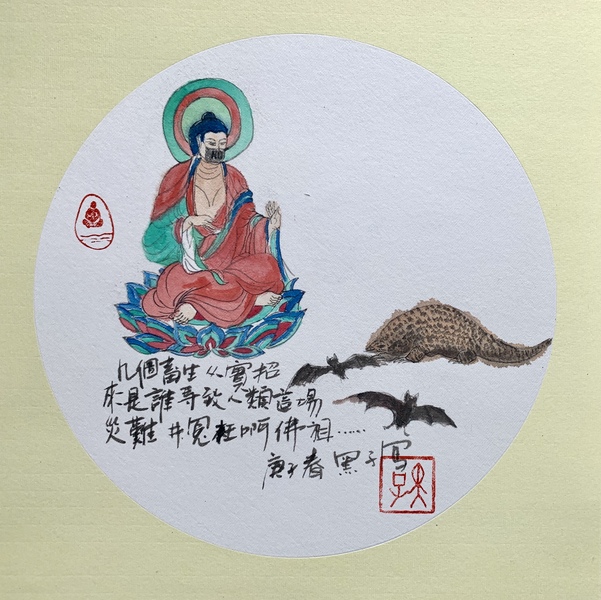 几個畜生从實招
來是誰导致人類這場
災難 冤枉啊佛祖……
庚子春 黑子寫